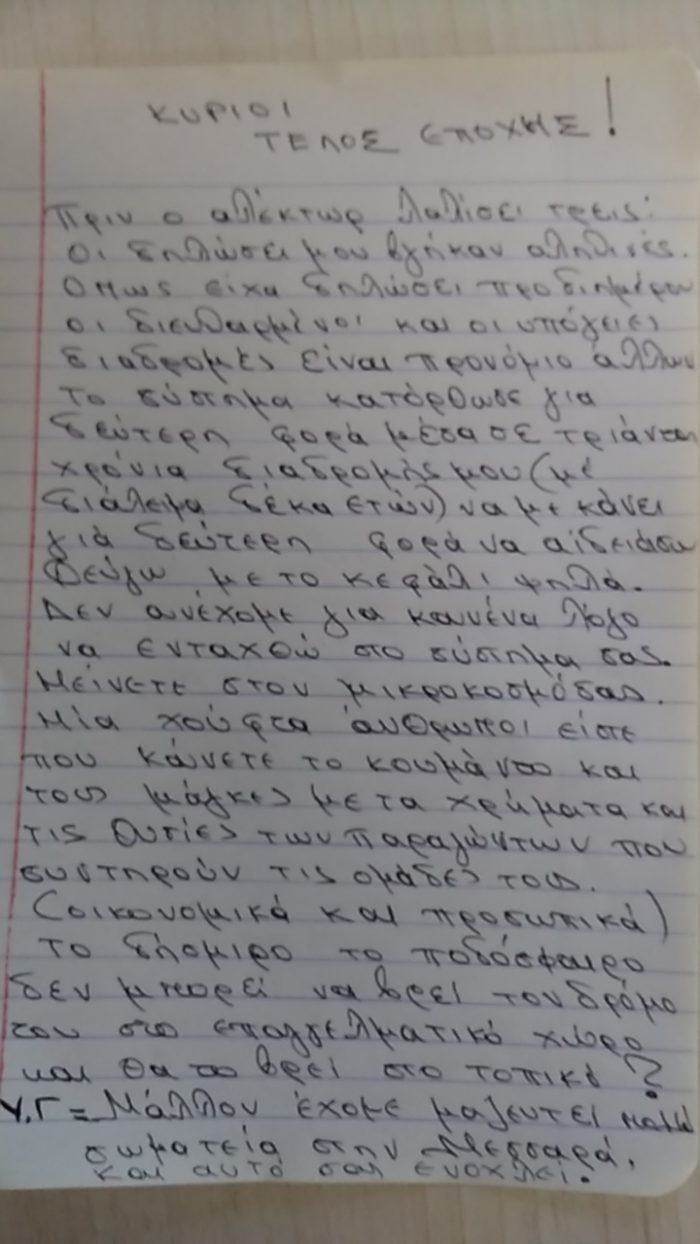 ΚΥΡΙΟΙ
ΤΕΛΟΣ ΕΠΟΧΗΣ!
Πριν ο αλέκτωρ λαλίσει τρεις:
Οι δηλώσει μου βγήκαν αληθινές.
Όπως είχα δηλώσει προδιημέρου
οι διευθαρμένοι και οι υπόγειες
διαδρομές είναι προνόμιο άλλων
το σύστημα κατόρθωσε για
δεύτερη φορά μέσα σε τριάντα
χρόνια διαδρομής μου (με
διάλειμα δέκα ετών) να με κάνει
γιά δεύτερη φορά να αϊδειάσω
Φεύγω με το κεφάλι ψηλά.
Δεν ανέχομε για κανένα λόγο
να ενταχθώ στο σύστημα σας.
Μείνετε στον μικροκοσμόσας.
Μία χούφτα άνθρωποι είστε
που κάνετε το κουμάντο και
τους μάγκες με τα χρήματα και
τις θυσίες των παραγώντων που
συντηρούν τις ομάδες τους.
(οικονομικά και προσωπικά)
το δήσμιρο το ποδόσφαιρο
δεν μπορεί να βρει τον δρόμο
του στο επαγγελματικό χώρο
και θα το βρει στο τοπικό?
Υ.Γ = Μάλλον έχομε μαζευτεί πολλά
σωματεία στην Μεσσαρά,
και αυτό σας ενοχλεί.